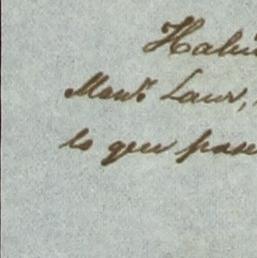 Habi
Manl. Laur,
lo que pase